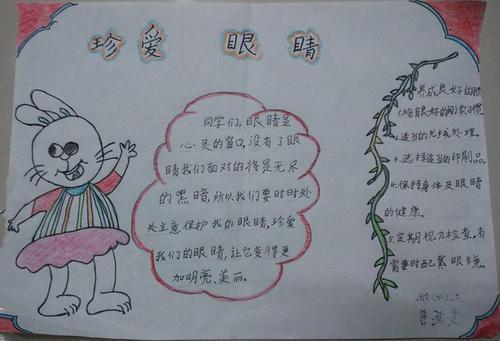 珍爱 眼睛
同学们,眼睛是
心灵的窗口,没有了眼
睛我们面对的将是无尽
的黑暗,所以我们要时时处
处主意保护我的眼睛,珍爱
我们的眼睛,让它变得更
加明亮、美丽。
养成良好的
2.适当的光线处理。
3.选择适当的印刷品
4.保持身体及眼睛
的健康。
5.定期视力检查,有
需要时配戴眼镜。